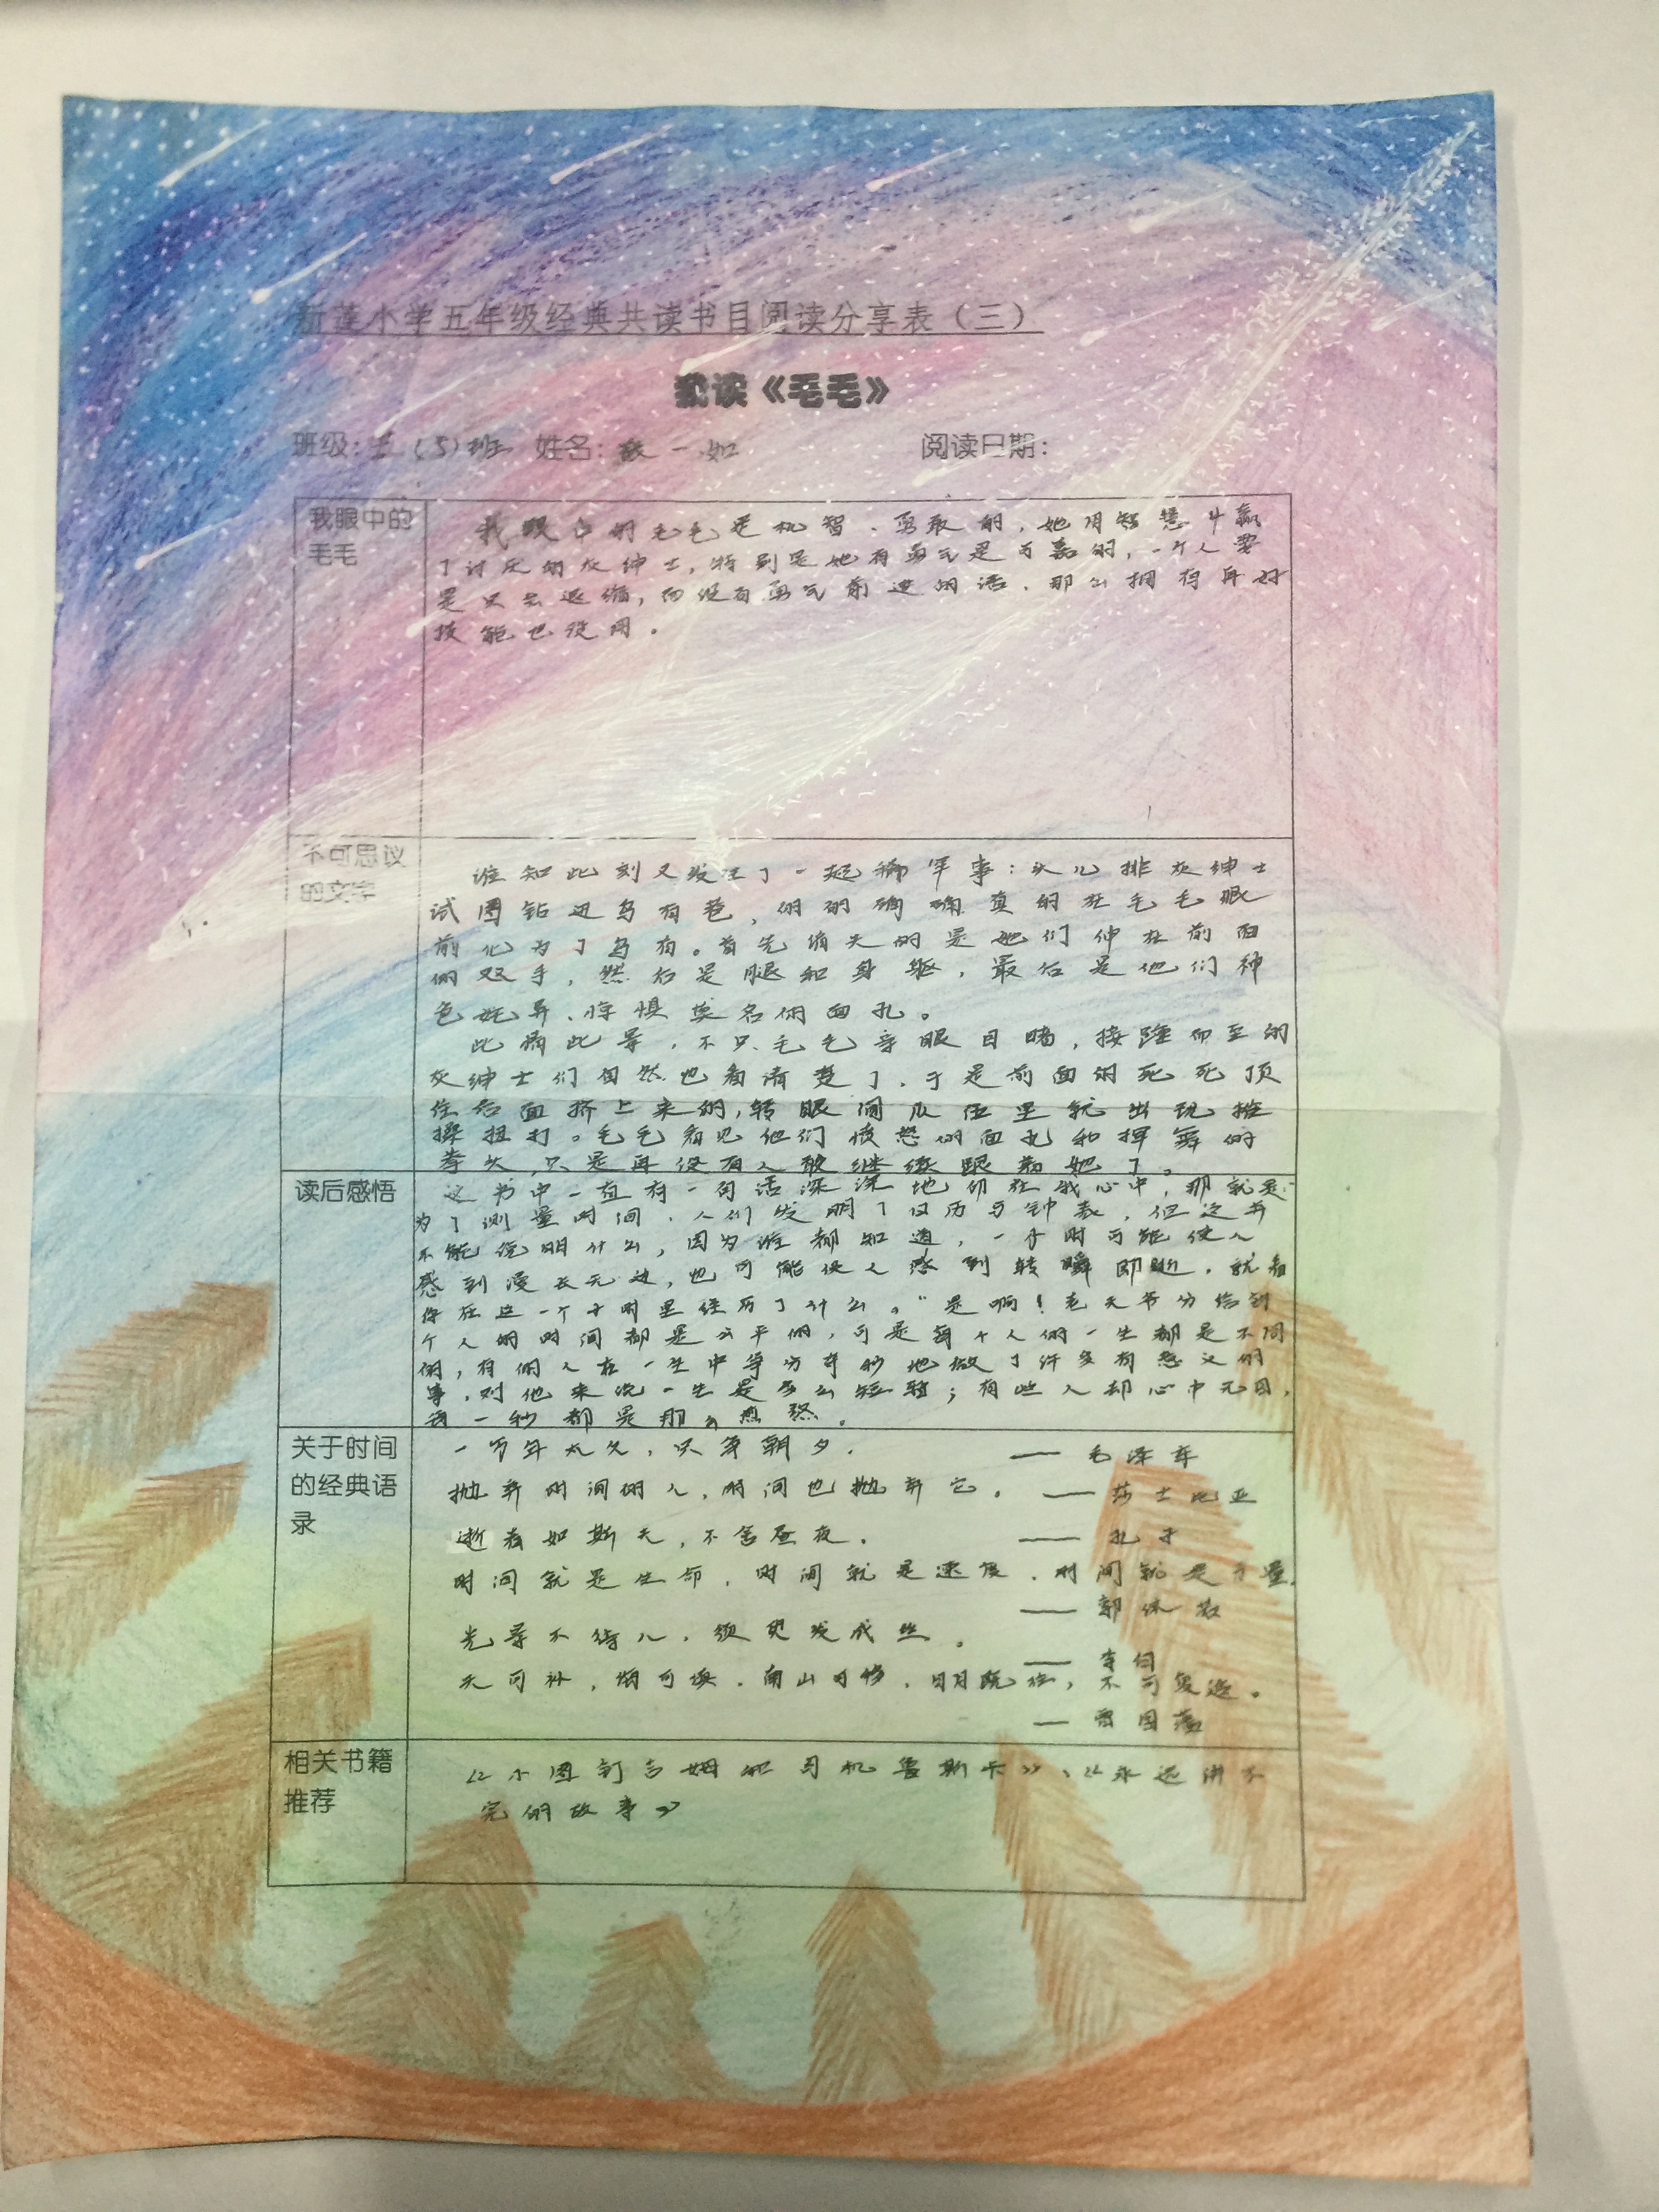 新莲小学五年级经典共读书目阅读分享表（三）
我读《毛毛》
班级：五（5）班 姓名： 一如 阅读日期：
我眼中的
毛毛
我眼中的毛毛是机智、勇敢的，她用智慧斗赢
了讨厌的灰绅士，特别是她有勇气是可嘉的，一个人要
是只会退缩，而没有勇气前进的话，那么拥有再好
技能也没用。
不可思议
的文字
谁知此刻又发生了一起稀罕事：头几排灰绅士
试图钻进乌有巷，的的确确真的在毛毛眼
前化为了乌有。首先消失的是他们伸在前面
的双手，然后是腿和身躯，最后是他们神
色诧异、惊惧莫名的面孔。
此情此景，不只毛毛亲眼目睹，接踵而至的
灰绅士们自然也看清楚了，于是前面的死死顶
住后面挤上来的，转眼间队伍里就出现推
搡扭打。毛毛看见他们愤怒的面孔和挥舞的
拳头，只是再没有人敢继续跟着她了。
读后感悟
这书中一直有一句话深深地印在我心中，那就是“
为了测量时间，人们发明了日历与钟表，但这并
不能说明什么，因为谁都知道，一小时可能使人
感到漫长无边，也可能使人感到转瞬即逝，就看
你在这一个小时里经历了什么。”是啊！老天爷分给每
个人的时间都是公平的，可是每个人的一生都是不同
的，有的人在一生中争分夺秒地做了许多有意义的
事，对他来说一生是多么短暂；有些人却心中无目，
每一秒都是那么煎熬。
关于时间
的经典语
录
一万年太久，只争朝夕。 —— 毛泽东
抛弃时间的人，时间也抛弃它。 —— 莎士比亚
逝者如斯夫，不舍昼夜。 —— 孔子
时间就是生命，时间就是速度，时间就是力量。
—— 郭沫若
光景不待人，须臾发成丝。
—— 李白
天可补，海可填，南山可移，日月既往，不可复追。
—— 曾国藩
相关书籍
推荐
《小图钉吉姆和司机鲁斯卡》、《永远讲不
完的故事》